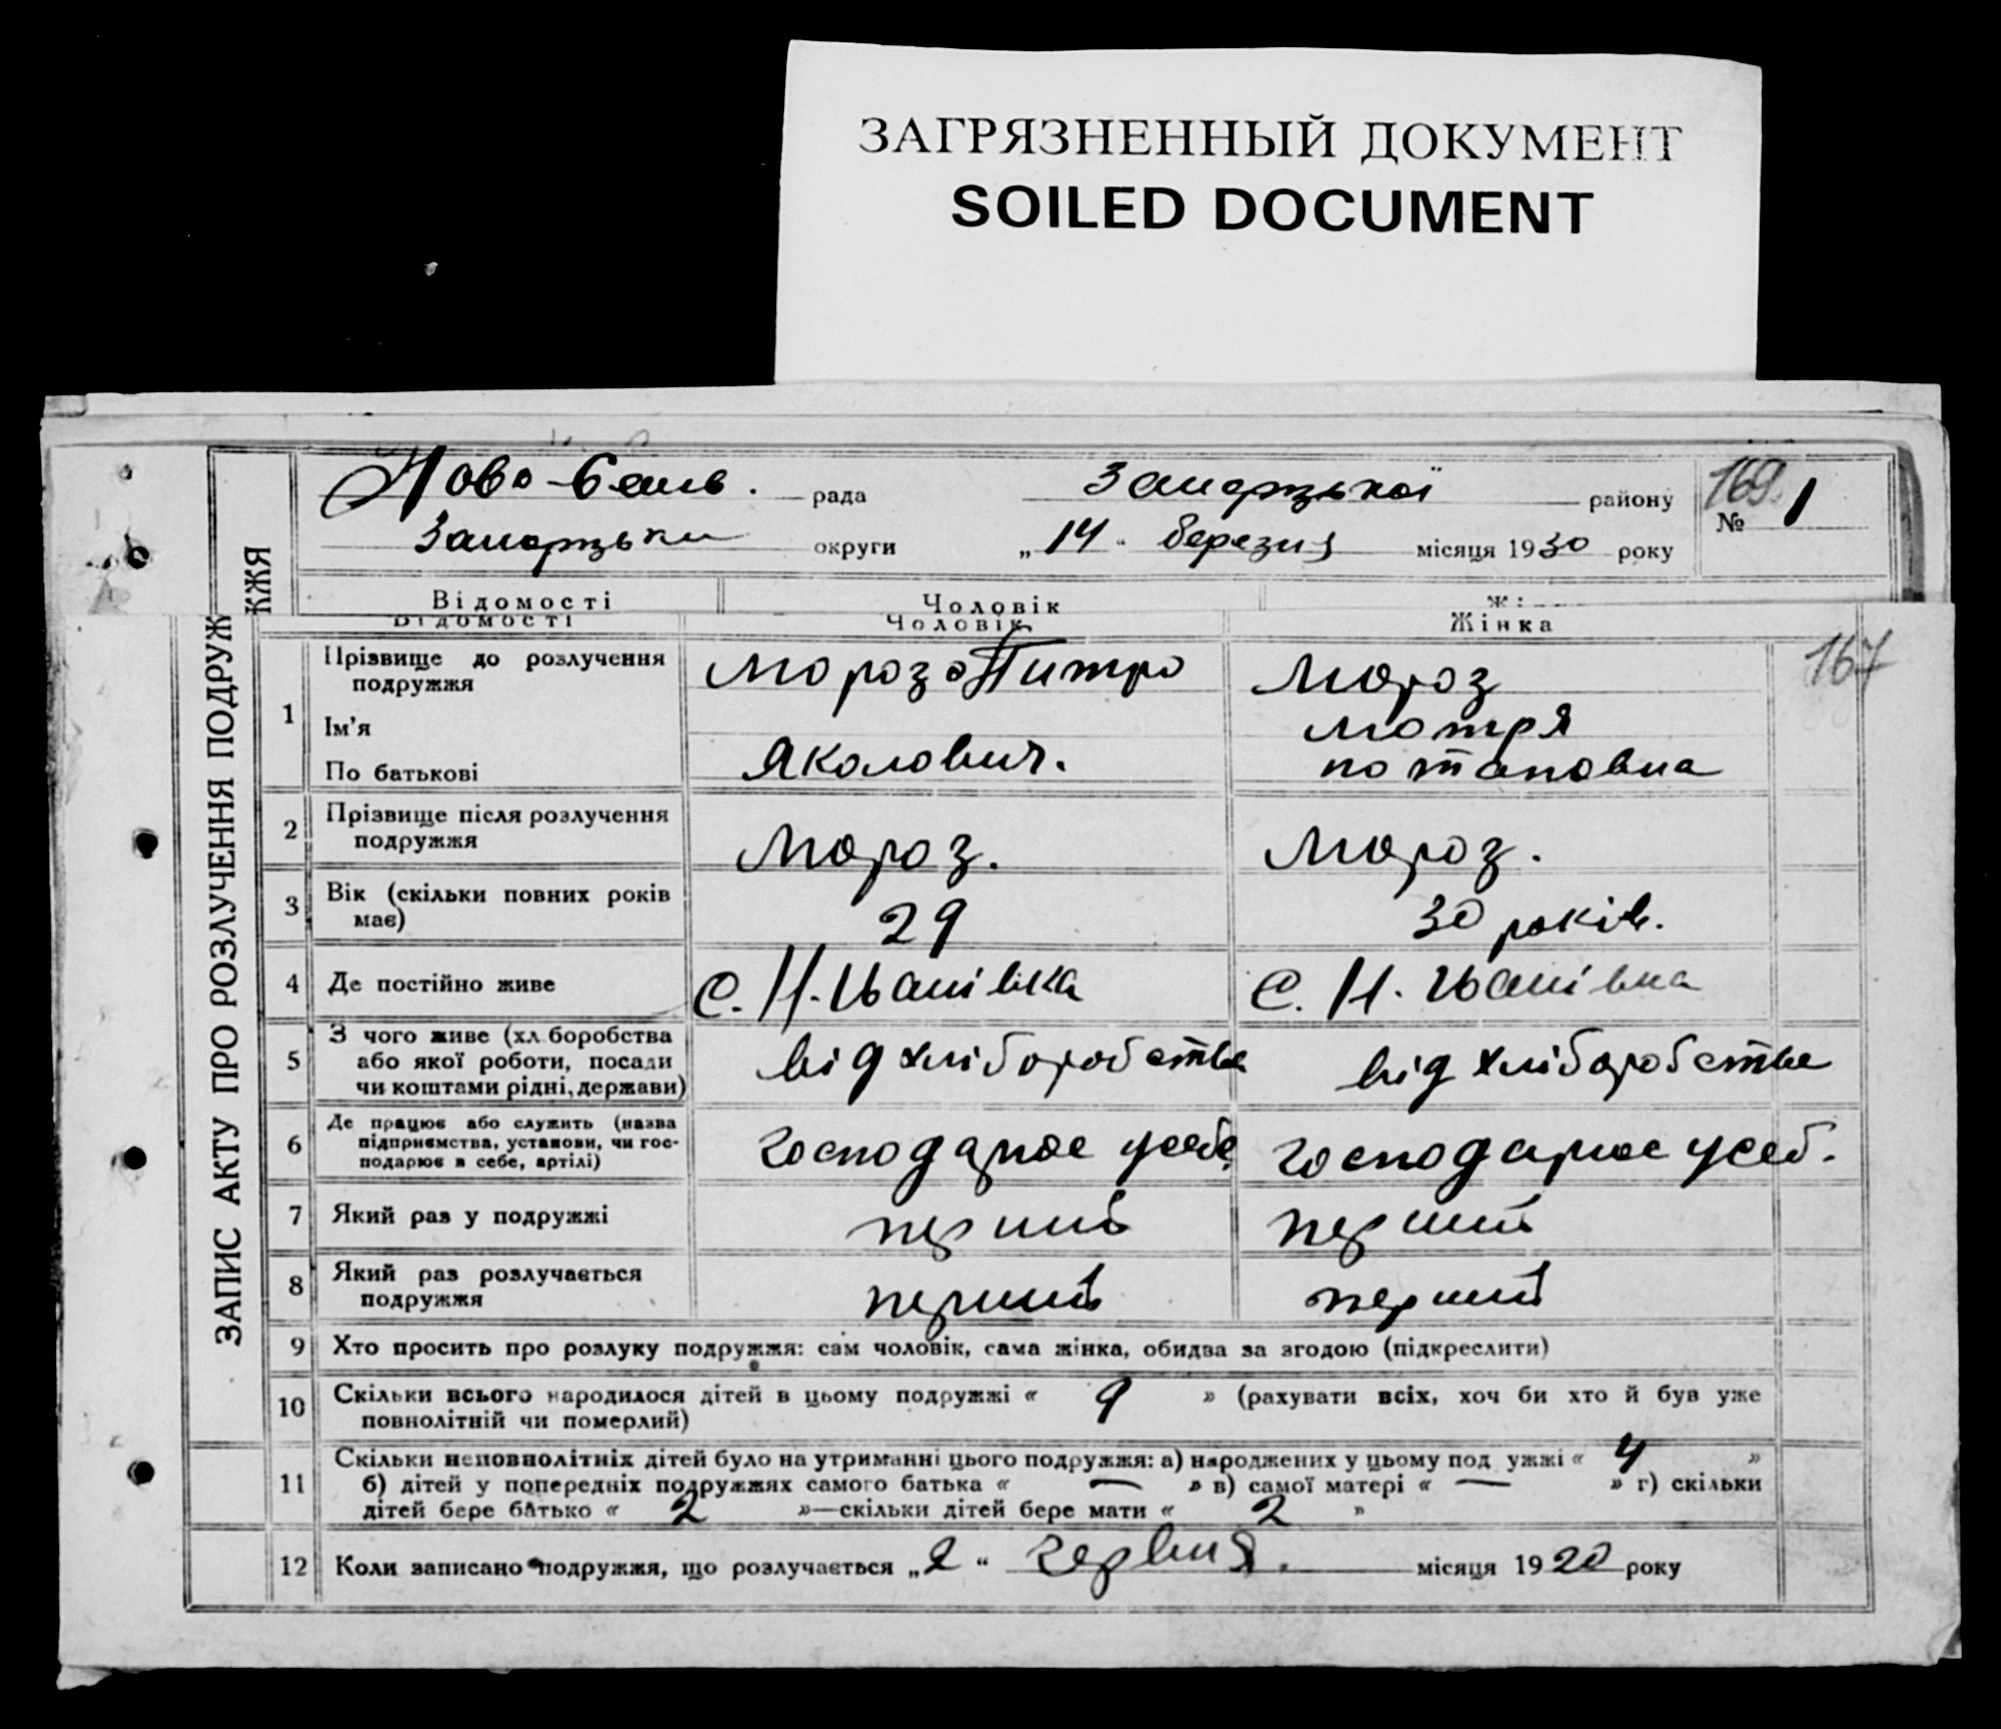 ЗАГРЯЗНЕННЫЙ ДОКУМЕНТ
SOILED DOCUMENT
Ново- рада Запорзької району 169
округи „14" березня місяця 1930 року № 1
ЖЖЯ
Відомості Чоловік
Відомості Чоловік Жінка
ЗАПИС АКТУ ПРО РОЗЛУЧЕННЯ ПОДРУЖ
167
1 Прізвище до розлучення подружжя
Мороз Питро Мороз
Ім'я
мотря
По батькові
Яколович. потаповна
2 Прізвище після розлучення
подружжя
Мороз. Мороз.
3 Вік (скільки повних років
має)
29 30 років.
4 Де постійно живе с. Н. Іванівка с. Н. Іванівка
5 З чого живе (хл боробства
або якої роботи, посади
чи коштами рідні, держави)
від хліборобства від хліборобства
6 Де працює або служить (назва
підприємства, установи, чи гос-
подарює в себе, артілі)
господарює усебе господарює усеб.
7 Який раз у подружжі перший перший
8 Який раз розлучається
подружжя
перший перший
9 Хто просить про розлуку подружжя: сам чоловік, сама жінка, обидва за згодою (підкреслити)
10 Скільки всього народилося дітей в цьому подружжі « 9 » (рахувати всіх, хоч би хто й був уже
повнолітній чи померлий)
11 Скільки неповнолітніх дітей було на утриманні цього подружжя: а) народжених у цьому под ужжі « 4 »
б) дітей у попередніх подружжях самого батька « — » в) самої матері « — » г) скільки
дітей бере батько « 2 »—скільки дітей бере мати « 2 »
12 Коли записано подружжя, що розлучається „2" червня. місяця 1920 року